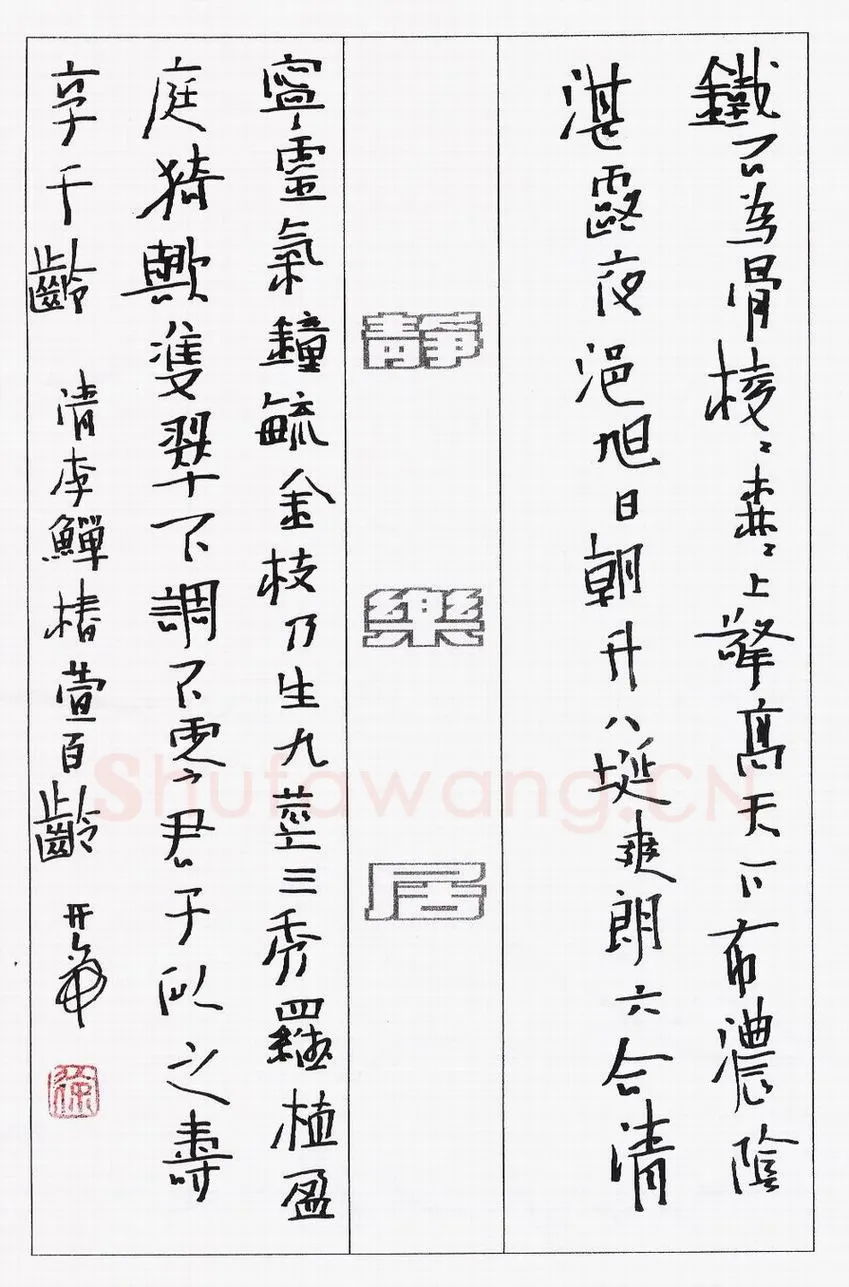 鐵石為骨棱〻森〻上擎高天下布濃陰
湛露夜浥旭日朝升八埏爽朗六合清
靜樂居
寧靈氣鐘毓金枝乃生九莖三秀羅植盈
庭猗歟雙翠不調不零君子似之壽
享千齡 清李鱓椿萱百齡
Shufawang.CN